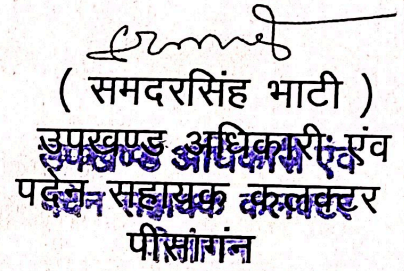 ( समदरसिंह भाटी )
उपखण्ड अधिकारी एंव
पदेन सहायक कलक्टर
पीसांगन